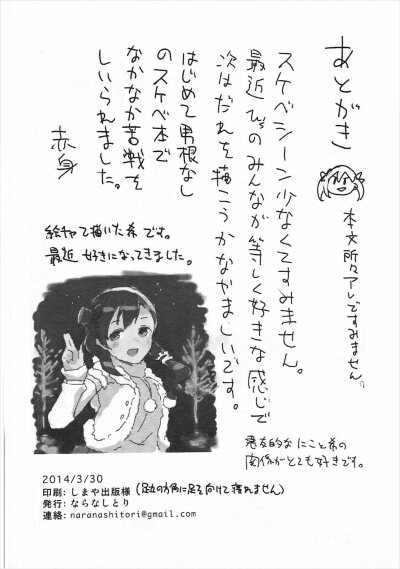 あとがき
本文所々アレですみません。
スケベシーン少なくてすみません。
最近 μ'sのみんなが等しく好きな感じで
次はだれを描こうかなやましいです。
はじめて男根なし
のスケベ本で
なかなか苦戦を
しいられました。
赤身
潜在的なにこと希の
関係がとても好きです。
絵チャで描いた希です。
最近 好きになってきました。
2014/3/30
印刷: しまや出版様 (足立の方角に足を向けて寝れません)
発行: ならなしとり
連絡: naranashitori@gmail.com